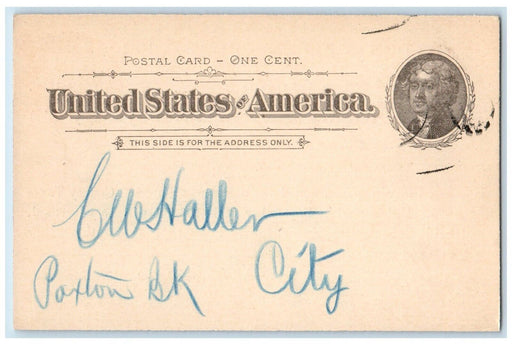 POSTAL CARD – ONE CENT.
United States of America.
THIS SIDE IS FOR THE ADDRESS ONLY.
C W Haller
Paxton Blk City